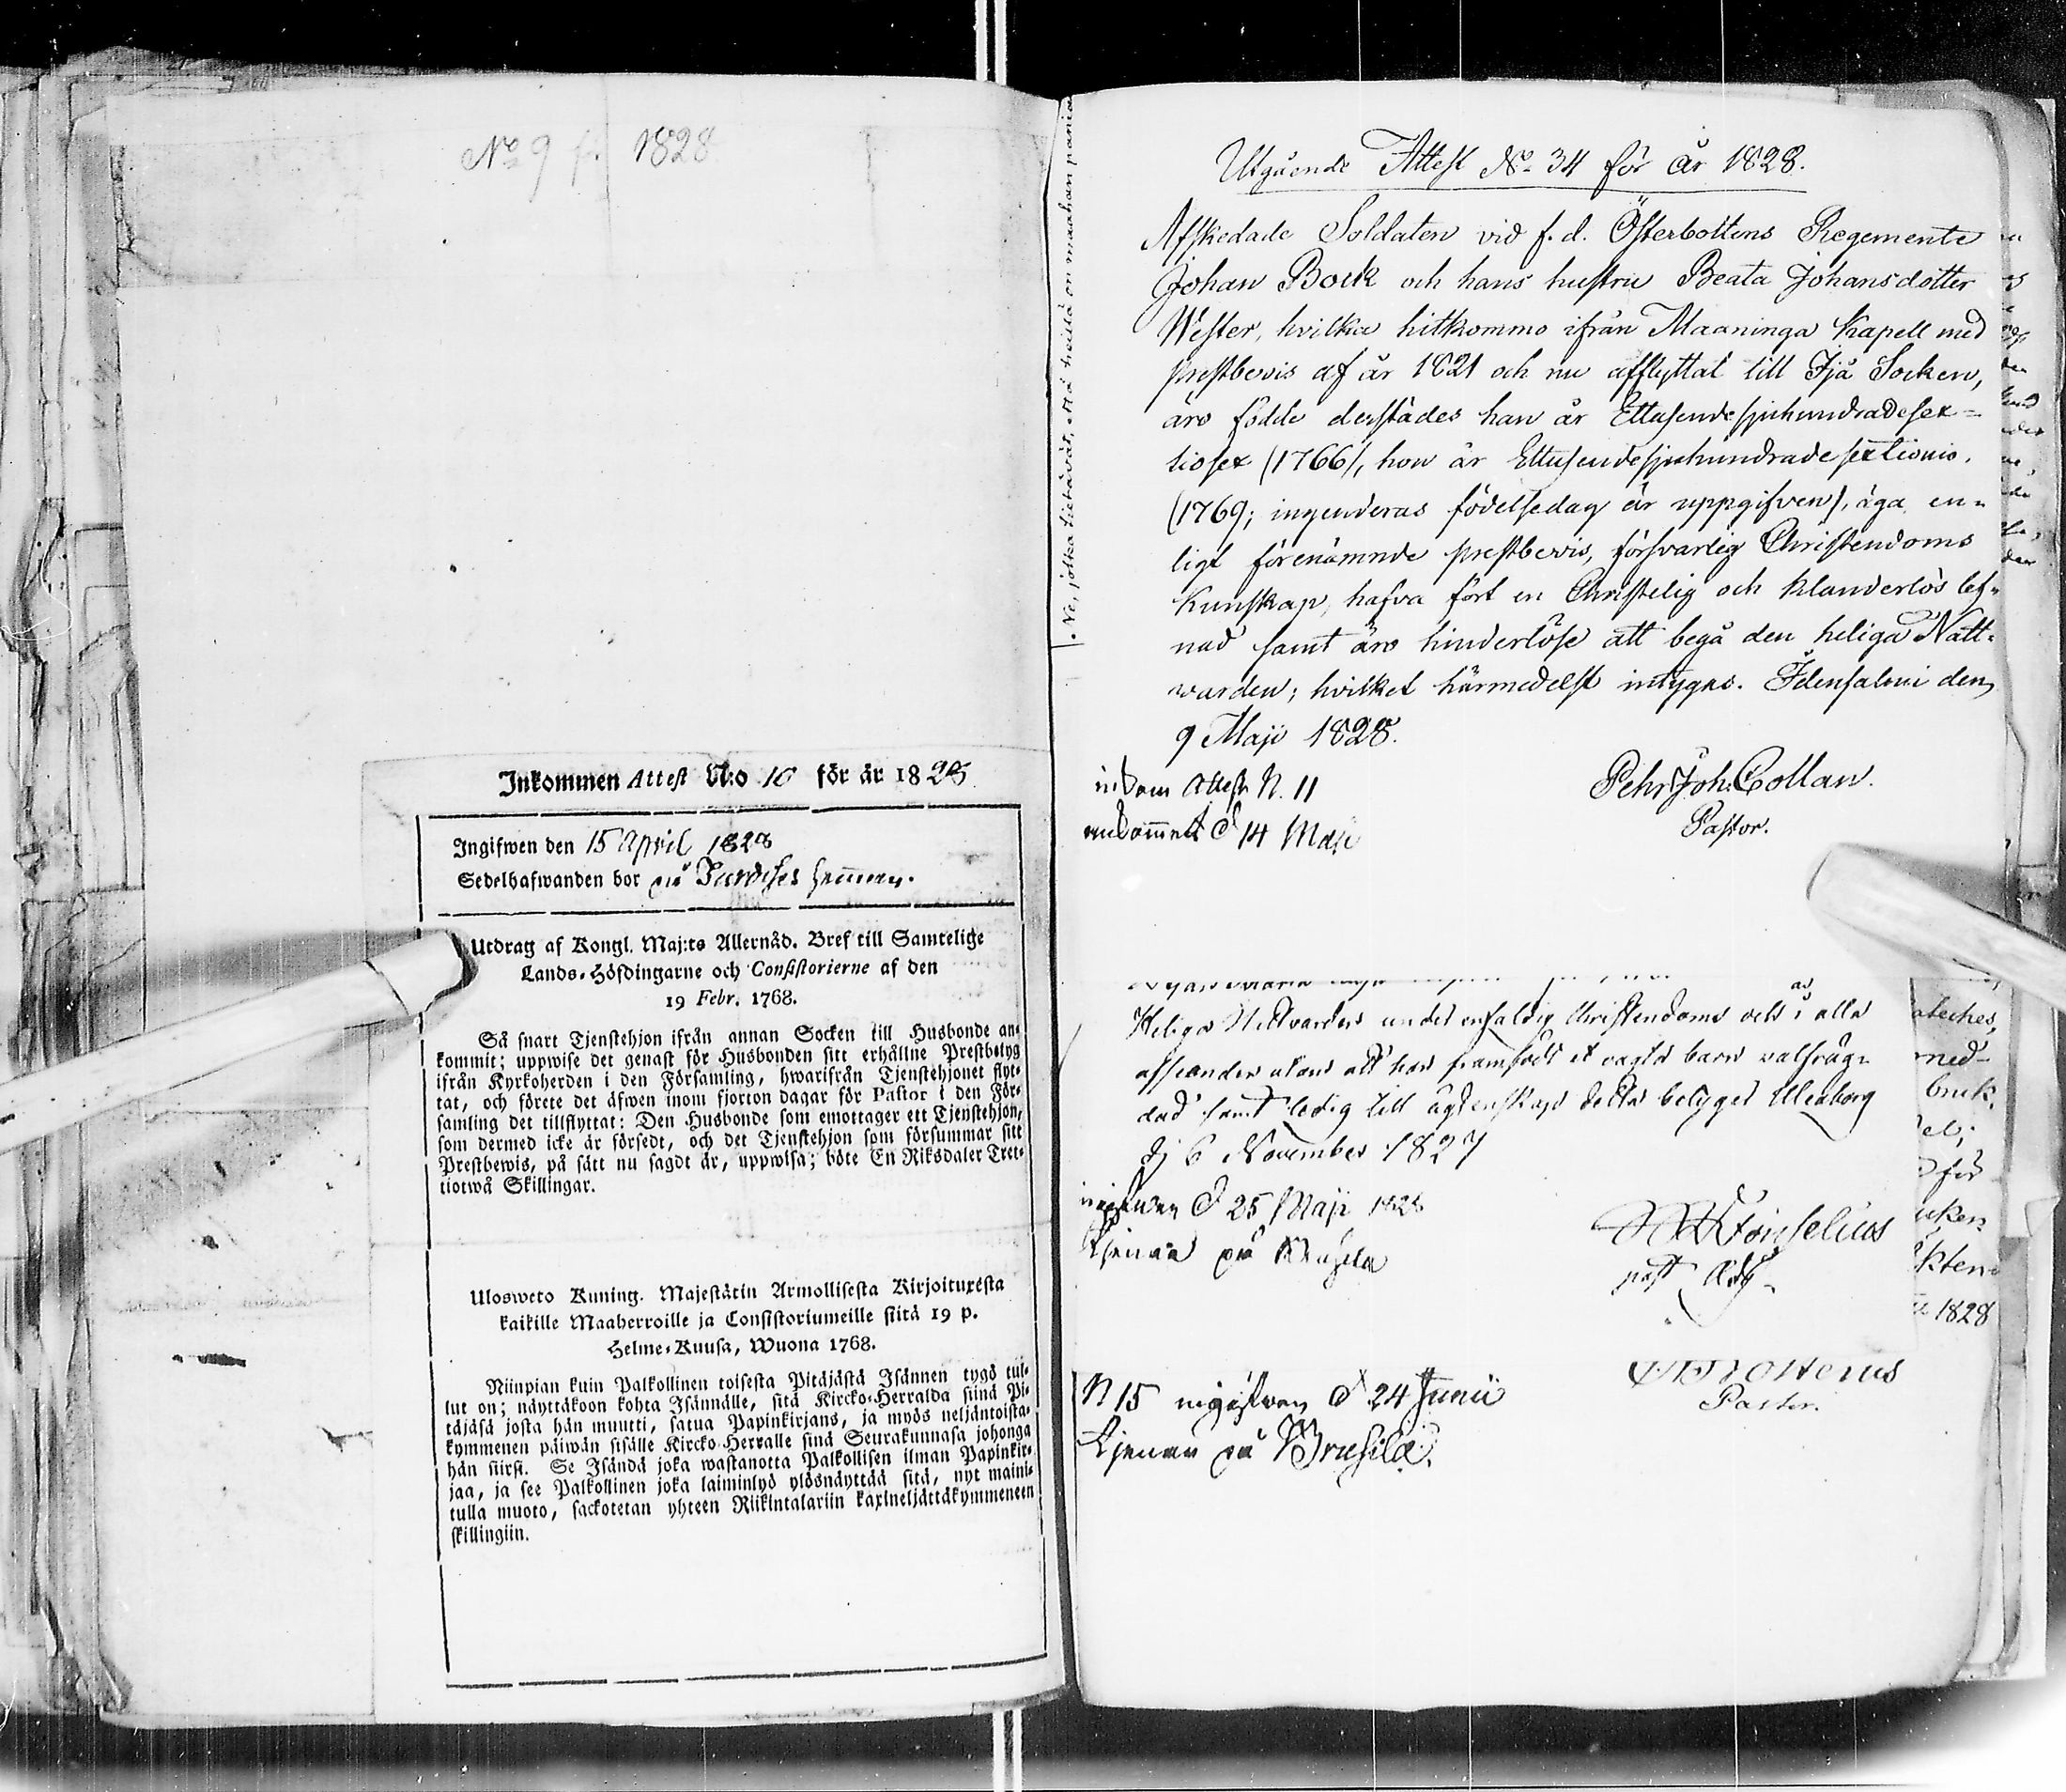 No 9 f. 1828
Inkommen Attest N:o 10 för år 1828
Ingifwen den 15 April 1828
Sedelhafwanden bor på
Utdrag af Kongl. Maj:ts Allernåd. Bref till Samtelige
Lands-Höfdingarne och Consistorierne af den
19 Febr. 1768.
Så snart Tjenstehjon ifrån annan Socken till Husbonde an-
kommit; uppwise det genast för Husbonden sitt erhållne Prestbetyg
ifrån Kyrkoherden i den Församling, hwarifrån Tjenstehjonet flyt-
tat, och förete det äfwen inom fjorton dagar för Pastor i den För-
samling det tillflyttat: Den Husbonde som emottager ett Tjenstehjon,
som dermed icke är försedt, och det Tjenstehjon som försummar sitt
Prestbewis, på sätt nu sagdt är, uppwisa; böte En Riksdaler Tret-
tiotwå Skillingar.
Ulosweto Kuning. Majestätin Armollisesta Kirjoituxesta
kaikille Maaherroille ja Consistoriumeille siitä 19 p.
Helme-Kuusa, Wuona 1768.
Niinpian kuin Palkollinen toisesta Pitäjästä Isännen tygö tul-
lut on; näyttäkoon kohta Isännälle, sitä Kircko-Herralda siinä Pi-
täjäsä josta hän muutti, satua Papinkirjans, ja myös neljäntoista-
kymmenen päiwän sisälle Kircko-Herralle sinä Seurakunnasa johonga
hän siirsi. Se Isändä joka wastanotta Palkollisen ilman Papinkir-
jaa, ja see Palkollinen joka laiminlyö ylösnäyttää sitä, nyt maini-
tulla muoto, sackotetan yhteen Riikintalariin kaxineljättäkymmeneen
skillingiin.
Ne, jotka tietävät, että heillä on maahan
Utgående Attest No 34 för år 1828.
Afskedade Soldaten vid f. d. Österbottens Regemente
Johan Bock och hans hustru Beata Johansdotter
Wester, hvilka hitkommo ifrån Maaninga Kapell med
prestbevis af år 1821 och nu afflyttat till Ijå Socken,
äro födde derstädes han år Ettusendesjuhundradesex-
tiosex (1766), hon år Ettusendesjuhundradesextionio.
(1769; ingenderas födelsedag är uppgifven), äga en-
ligt förenämnde prestbevis, försvarlig Christendoms
Kunskap, hafva fört en Christelig och klanderlös lef-
nad samt äro hinderlöse att begå den heliga Natt-
warden; hvilket härmedelst intygas. Idensalmi den
9 Maji 1828.
Pehr Joh. Collan.
Pastor.
inkom Attest N. 11
ankommit d 14 Maji
Heliga Nattvarden under enfaldig Christendoms och i alla
afseenden utom att hon framfödt et oägta barn välfräg-
dad samt ledig till ägtenskap detta betyges Uleåborg
dj 6 November 1827
ingifwen d 25 Maji 1828
tjenar på
past. Adj.
ateches,
med-
bruk.
1828
Pastor.
N 15 ingifwen d 24 Junii
tjenar på Brusila.